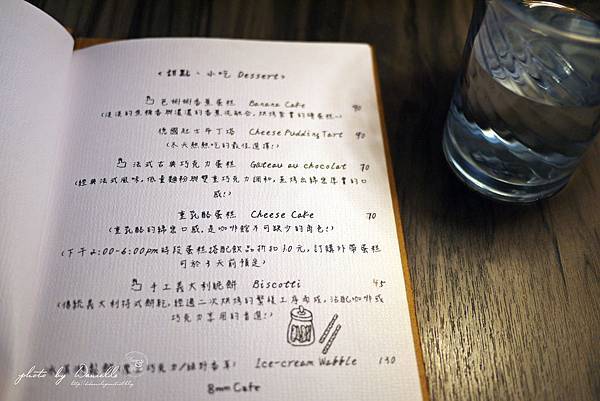 <甜點、小吃 Dessert>
芭娜娜香蕉蛋糕 Banana Cake 90
(淡淡的焦糖香與濃濃的香蕉泥融合,烘烤紮實的磅蛋糕~)
德國起士布丁塔 Cheese Pudding Tart 90
(冬天熱熱吃的最佳選擇!)
法式古典巧克力蛋糕 Gateau au chocolat 70
(經典法式風味,低量麵粉與雙重巧克力調和,蒸烤出綿密厚實的口
感!)
重乳酪蛋糕 Cheese Cake 70
(重乳酪的綿密口感,是咖啡館不可缺少的角色!)
(下午2:00-6:00pm時段蛋糕搭配飲品折扣10元,訂購外帶蛋糕
可於3天前預定)
手工義大利脆餅 Biscotti 45
(傳統義大利持式餅乾,經過二次烘烤的繁複工序而成,沾配咖啡或
巧克力享用的首選!)
巧克力/綜 Ice-cream Wabble 130
8mm Cafe
photo by Danielle